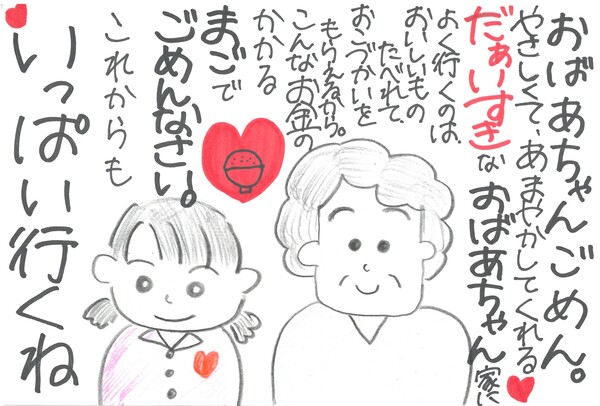 おばあちゃんごめん。
やさしくて、あまやかしてくれる
だぁいすきなおばあちゃん家に
よく行くのは、
おいしいもの
たべれて、
おこづかいを
もらえるから。
こんなお金の
かかる
まごで
ごめんなさい。
これからも
いっぱい行くね